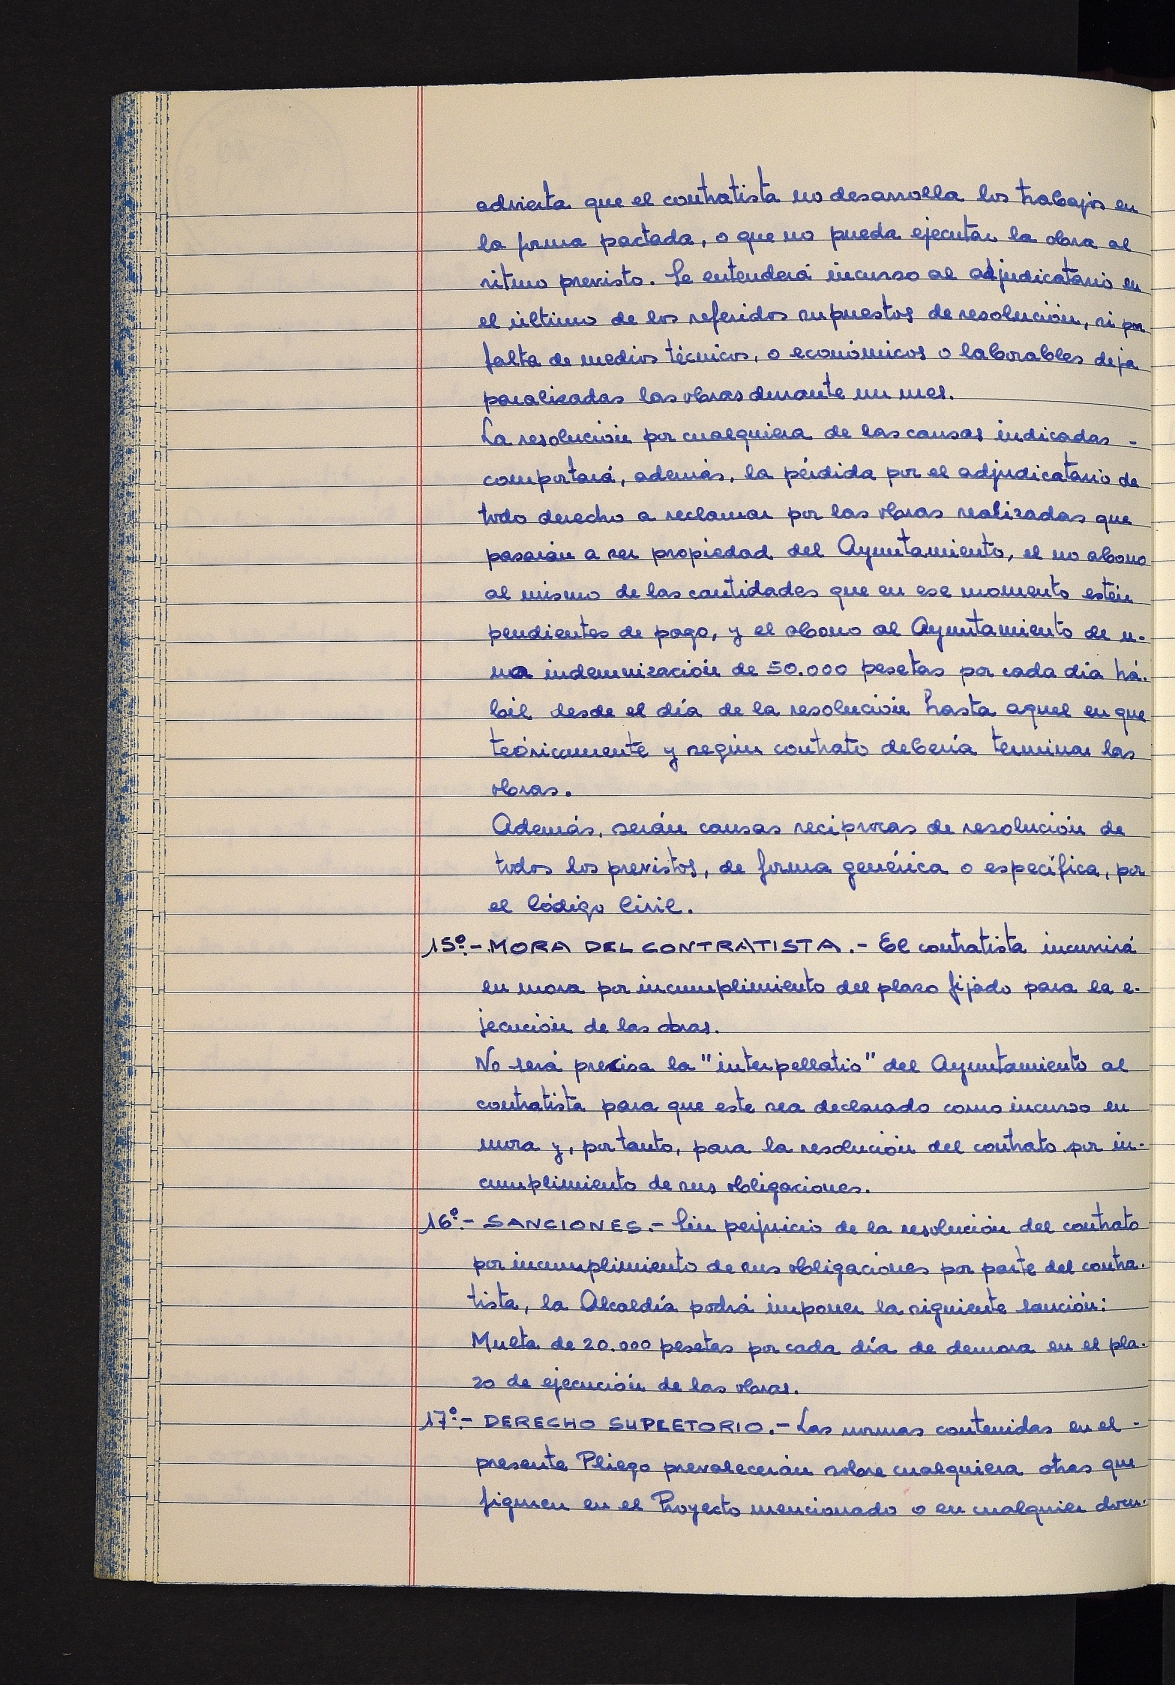 advierta que el contratista no desarrolla los trabajos en
la forma pactada, o que no pueda ejecutar la obra al
ritmo previsto. Se entenderá incurso al adjudicatario en
el último de los referidos supuestos de resolución, si por
falta de medios técnicos, o económicos o laborables deja
paralizadas las obras durante un mes.
La resolución por cualquiera de las causas indicadas -
comportará, además, la pérdida por el adjudicatario de
todo derecho a reclamar por las obras realizadas que
pasarán a ser propiedad del Ayuntamiento, el no abono
al mismo de las cantidades que en ese momento estén
pendientes de pago, y el abono al Ayuntamiento de u-
na indemnización de 50.000 pesetas por cada día há-
bil desde el día de la resolución hasta aquel en que
teóricamente y según contrato debería terminar las
obras.
Además, serán causas recíprocas de resolución de
todos los previstos, de forma genérica o específica, por
el Código Civil.
15º.- MORA DEL CONTRATISTA.- El contratista incurrirá
en mora por incumplimiento del plazo fijado para la e-
jecución de las obras.
No será precisa la "interpellatio" del Ayuntamiento al
contratista para que este sea declarado como incurso en
mora y, por tanto, para la resolución del contrato por in-
cumplimiento de sus obligaciones.
16º.- SANCIONES.- Sin perjuicio de la resolución del contrato
por incumplimiento de sus obligaciones por parte del contra-
tista, la Alcaldía podrá imponer la siguiente sanción:
Multa de 20.000 pesetas por cada día de demora en el pla-
zo de ejecución de las obras.
17º.- DERECHO SUPLETORIO.- Las normas contenidas en el -
presente Pliego prevalecerán sobre cualquiera otras que
figuren en el Proyecto mencionado o en cualquier docu-